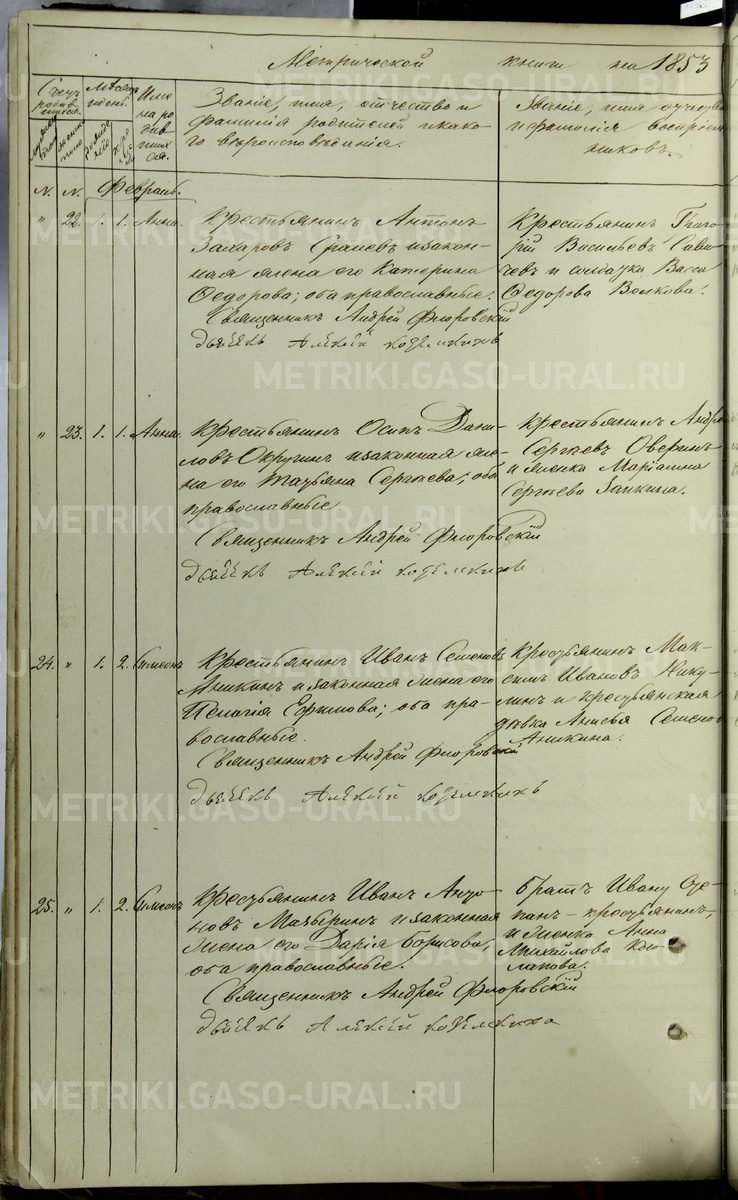 Метрической книги на 1853
Счетъ родив-шихся.
Мѣсяцъ и день.
Имена родив-шихся.
Званіе, имя, отчество и фамилія родителей и какого вѣроисповѣданія.
Званіе, имя, отчество и фамилія воспріем-никовъ.
N. N. Февраль.
" 22. 1. 1. Анна.
Крестьянинъ Антонъ
Захаровъ и закон-
ная жена его Катерина
Ѳедорова; оба православные.
Священникъ Андрей Флоровскій
дьячекъ Алексѣй
Крестьянинъ Григо-
рій Васильевъ
и солдатка Васса
Ѳедорова Волкова.
" 23. 1. 1. Анна.
Крестьянинъ Осипъ Дани-
ловъ и законная же-
на его Татьяна Сергѣева; оба
православные.
Священникъ Андрей Флоровскій
дьячекъ Алексѣй
Крестьянинъ Андрей
Сергѣевъ Оверинъ
и женка Маріамна
Сергѣева
24. " 1. 2. Симеонъ
Крестьянинъ Иванъ Семеновъ
Аникинъ и законная жена его
Пелагія Ефимова; оба пра-
вославные.
Священникъ Андрей Флоровскій
дьячекъ Алексѣй
Крестьянинъ Мак-
симъ Ивановъ Нику-
линъ и крестьянская
дѣвка Анисья Семенова
Аникина.
25. " 1. 2. Симеонъ
Крестьянинъ Иванъ Анто-
новъ и законная
жена его Дарія Борисова,
оба православные.
Священникъ Андрей Флоровскій
дьячекъ Алексѣй
Братъ Ивану Сте-
панъ - крестьянинъ,
и женка Анна
Михайлова
METRIKI.GASO-URAL.RU